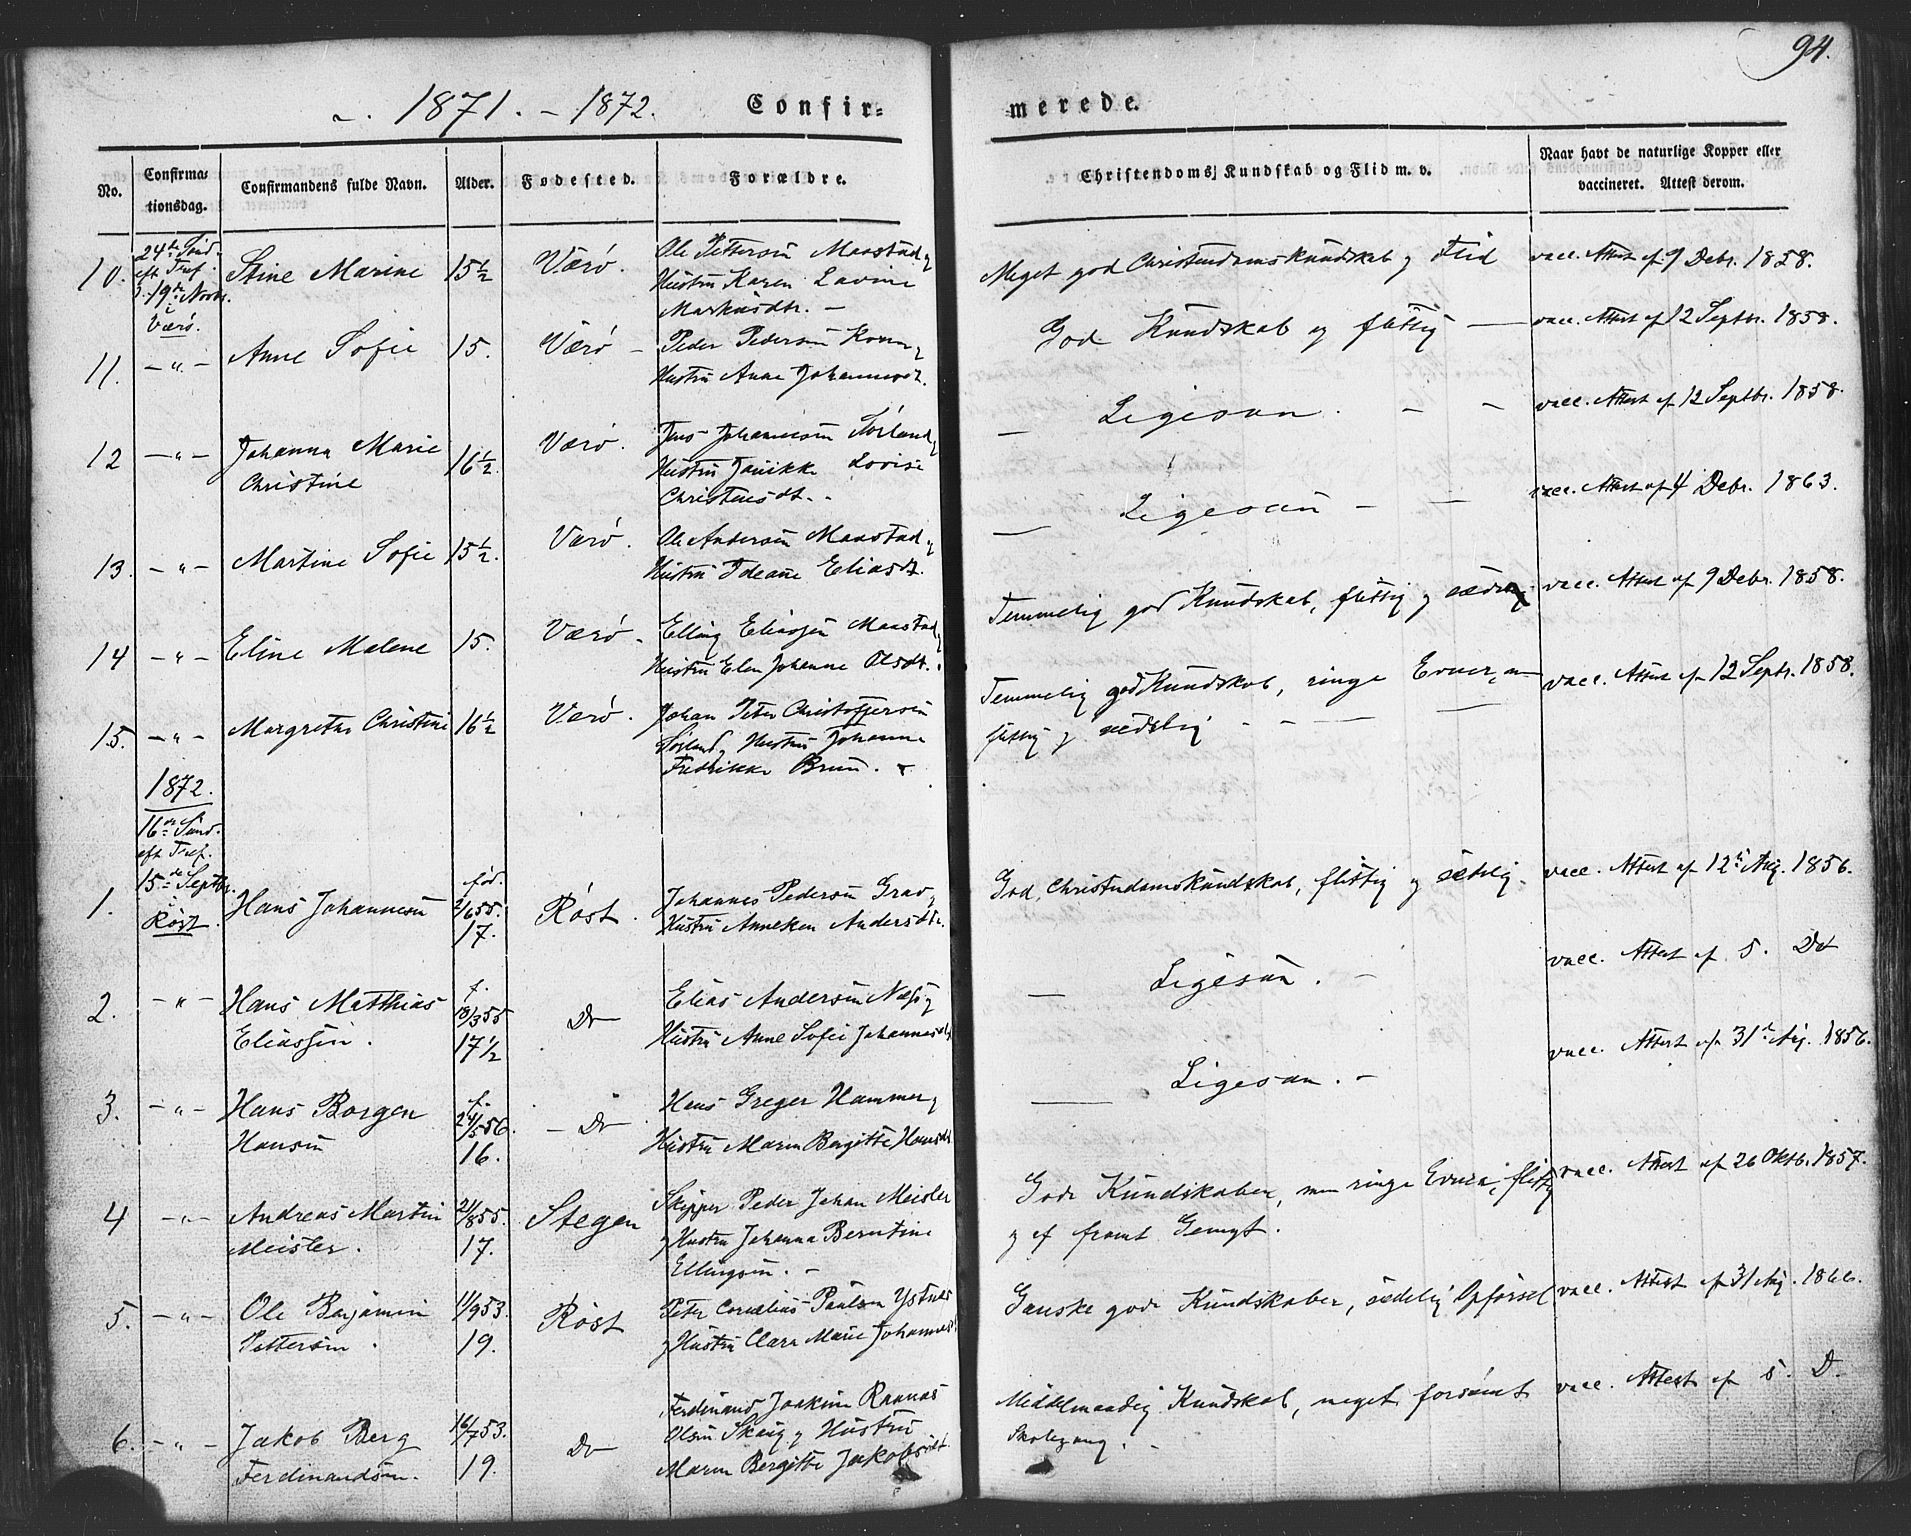 94.
1871. – 1872. Confir-
merede.
No.
Confirma-
tionsdag.
Confirmandens fulde Navn.
Alder.
Fødested.
Forældre.
Christendoms Kundskab og Flid m. v.
Naar havt de naturlige Kopper eller
vaccineret. Attest derom.
10. 24de Sønd.
eft Tref.
19de Novbr.
Værø.
Stine Marine 15½ Værø.
Ole Pettersen Maastad og
Hustru Karen Lavine
Markusdtr. –
Meget god Christendomskundskab og Flid
vacc. Attest af 9 Debr. 1858.
11. – " – Anne Sofie 15. Værø –
Peder Pedersen og
Hustru Anne Johannesdt.
God Kundskab og flittig –
vacc. Attest af 12 Septbr. 1858.
12 – " – Johanna Marie
Christine 16½. Værø.
Jens Johannesen Sørland og
Hustru Jannikke Lovise
Christensdt. -
– Ligesaa. – –
vacc. Attest af 12 Septbr. 1858.
13. – " – Martine Sofie 15½. Værø.
Ole Andersen Maastad og
Hustru Ideane Eliasdt.
– Ligesaa – –
vacc. Attest af 4 Debr. 1863.
14 – " – Eline Malene 15. Værø –
Elling Eliassen Maastad og
Hustru Elen Johanne Olsdt.
Temmelig god Kundskab, flittig og
vacc. Attest af 9 Debr. 1858.
15. – " – Margrete Christine 16½ Værø.
Johan Peter Christoffersen
Sørland og Hustru Johanna
Fredrikke Bruun.
Temmelig god Kundskab, ringe Evner,
flittig og sedelig
vacc. Attest af 12 Septr. 1858.
1872.
16de Sønd.
eft Tref.
15de Septbr.
Røst.
1. Hans Johannesen
fød.
2/6 55.
17. Røst.
Johannes Pedersen Grav og
Hustru Anneken Andersdtr.
God Christendomskundskab, flittig og sedelig.
vacc. Attest af 12te Aug. 1856.
2. – " – Hans Matthias
Eliassen.
f.
18/3 55
17½ Do
Elias Andersen Næsø
Hustru Anne Sofie Johannesdt
– Ligesaa. –
vacc. Attest af S. D.
3. – " – Hans Borgen
Hansen
f.
24/5 56.
16. – Do
Hans Greger Hammer og
Hustru Maren Bergitte Hansdt
– Ligesaa. –
vacc. Attest af 31te Aug. 1856.
4 – " – Andreas Martin
Meister.
21/8 55.
17. Stegen
Skipper Peder Johan Meisler
og Hustru Johanna Berntine
Ellingsen. –
Gode Kundskaber, men ringe Evner, flittig
og af fromt Gemyt.
vacc. Attest af 26 Oktb. 1857.
5. – " – Ole Benjamin
Pettersen.
11/9 53.
19. Røst
Peter Cornelius Paulsen Ystnæs
og Hustru Clara Marie Johannesdt
Ganske gode Kundskaber, sedelig Opførsel
vacc. Attest af 31 Aug. 1866.
6. – " – Jakob Berg
Ferdinandsen.
16/7 53.
19. Do
Ferdinand Joakim
Olsen og Hustru
Maren Bergitte Jakobsdt.
Middelmaadig Kundskab, meget forsømt
Skolegang. –
vacc. Attest af S. D.